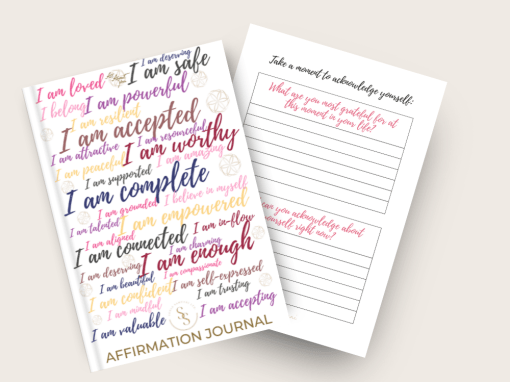 I am deserving
I am loved
I am safe
I belong
I am powerful
I am resilient
I am accepted
I am resourceful
I am attractive
I am worthy
I am peaceful
I am amazing
I am supported
I am complete
I am grounded
I believe in myself
I am talented
I am empowered
I am aligned
I am in-flow
I am connected
I am charming
I am enough
I am deserving
I am compassionate
I am beautiful
I am self-expressed
I am confident
I am trusting
I am mindful
I am valuable
I am accepting
AFFIRMATION JOURNAL
Take a moment to acknowledge yourself:
What are you most grateful for at
this moment in your life?
can you acknowledge about
yourself right now?